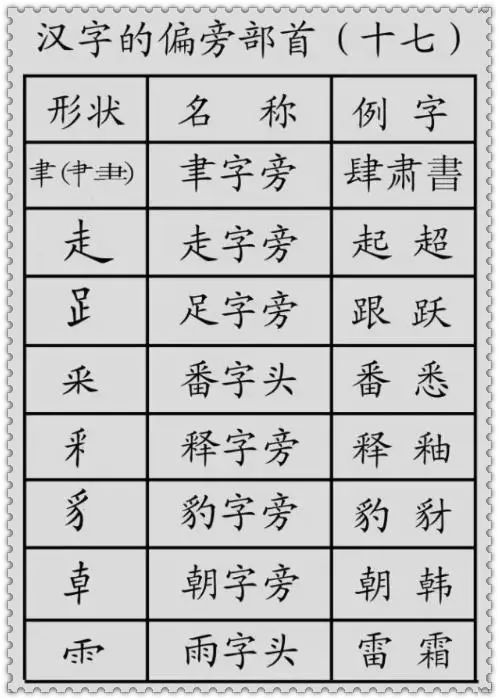 汉字的偏旁部首（十七）
形状 名 称 例 字
聿(肀⺻) 聿字旁 肆肃書
走 走字旁 起 超
⻊ 足字旁 跟 跃
釆 番字头 番 悉
釆 释字旁 释 釉
豸 豹字旁 豹 豺
𠦝 朝字旁 朝 韩
⻗ 雨字头 雷 霜